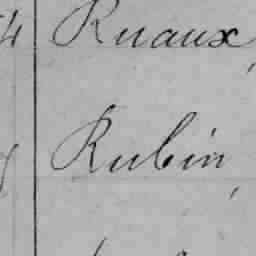 4 Ruaux,
Rubin,